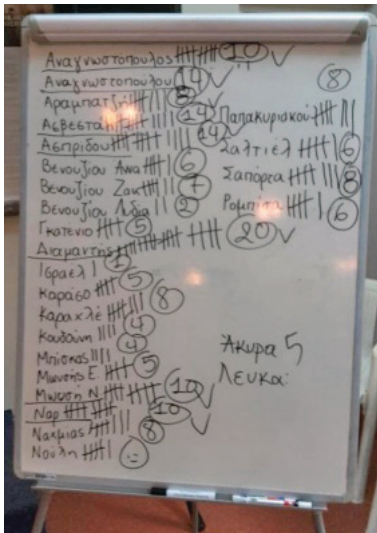 Αναγνωστοπουλος 10
Αναγνωστοπούλου 14
Αραμπατζή 8
Ασβεστα 14
Ασπρίδου 14
Βενουζίου Αννα 6
Βενουζίου Ζακ 7
Βενουζίου Λυδία 2
Γκατένιο 5
Διαμαντής 20
Ισραέλ 1
Καράσο 5
Καραχλέ 8
Κουδούνη 4
Μπίσκας 4
Μωυσής Ε 5
Μωυσή Ν 10
Ναρ 10
Ναχμίας 8
Νούλη
Παπακυριακού 8
Σαλτιέλ 6
Σαπόρτα 8
Ρομπίσα 6
Άκυρα 5
Λευκα: